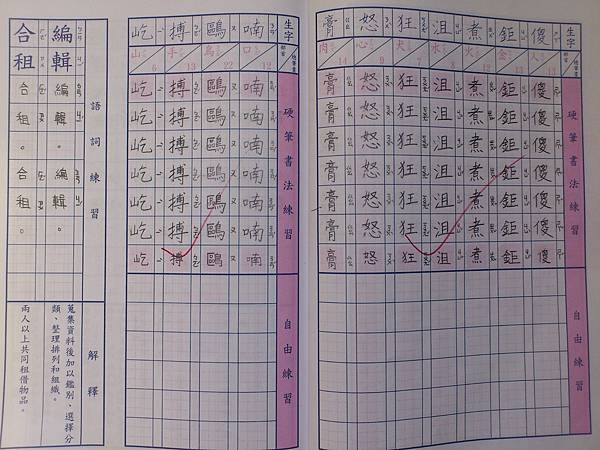 生字
部首
總筆畫
硬筆書法練習
自由練習
傻 人 13 傻傻傻傻傻傻傻
鉅 金 鉅鉅鉅鉅鉅鉅鉅
煮 火 煮煮煮煮煮煮煮
沮 水 8 沮沮沮沮沮沮沮
狂 犬 7 狂狂狂狂狂狂狂
怒 心 9 怒怒怒怒怒怒怒
膏 肉 14 膏膏膏膏膏膏膏
生字
部首
總筆畫
硬筆書法練習
自由練習
喃 口 12 喃喃喃喃喃喃喃
鷗 鳥 22 鷗鷗鷗鷗鷗鷗鷗
搏 手 13 搏搏搏搏搏搏搏
屹 山 6 屹屹屹屹屹屹屹
語詞練習
解釋
編輯
編輯。編輯。
蒐集資料後加以鑑別，選擇分
類、整理排列和組織。
合租
合租。合租。
兩人以上共同租借物品。